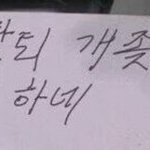 퇴 개좆
하네